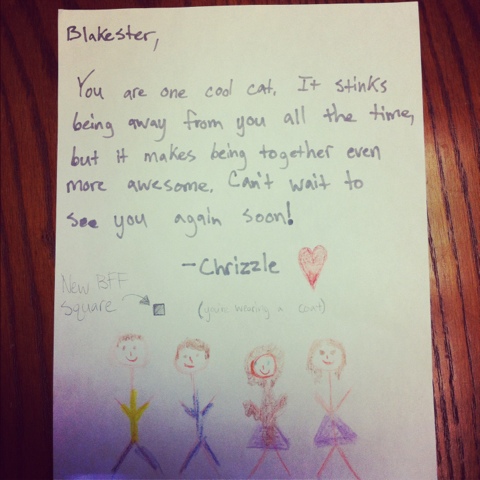 Blakester,
You are one cool cat. It stinks
being away from you all the time,
but it makes being together even
more awesome. Can't wait to
see you again soon!
-Chrizzle
New BFF
Square
(you're wearing a coat)